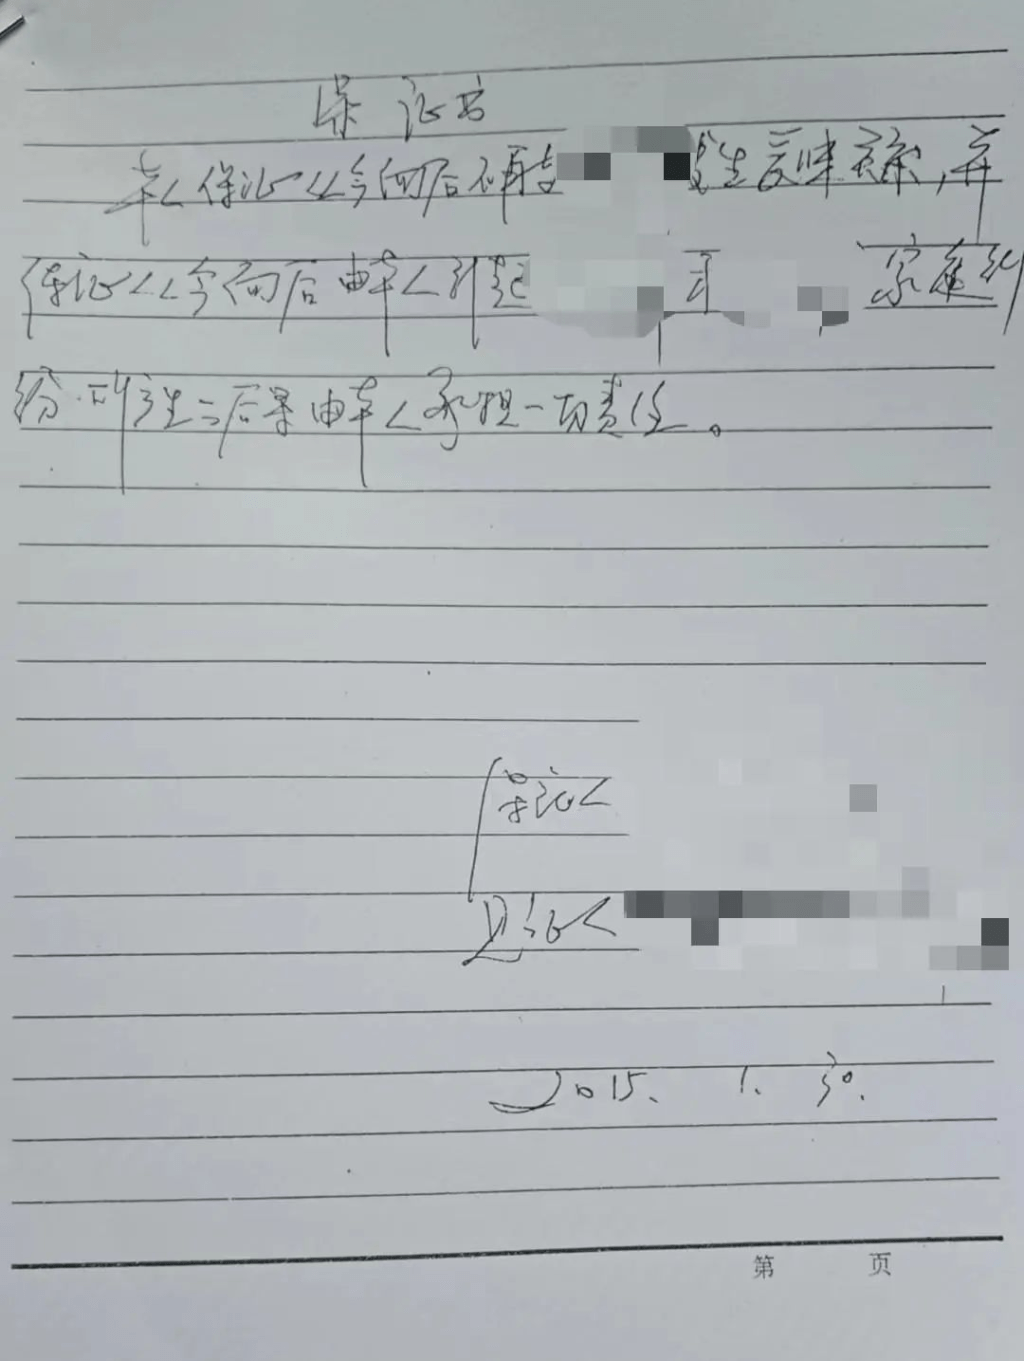 保证书
本人保证从今向后不再与 发生爱昧关系，并
保证从今向后由本人引起 家庭纠
纷.所产生二后果由本人承担一切责任。
保证人
见证人
2015. 1. 30.
第 页